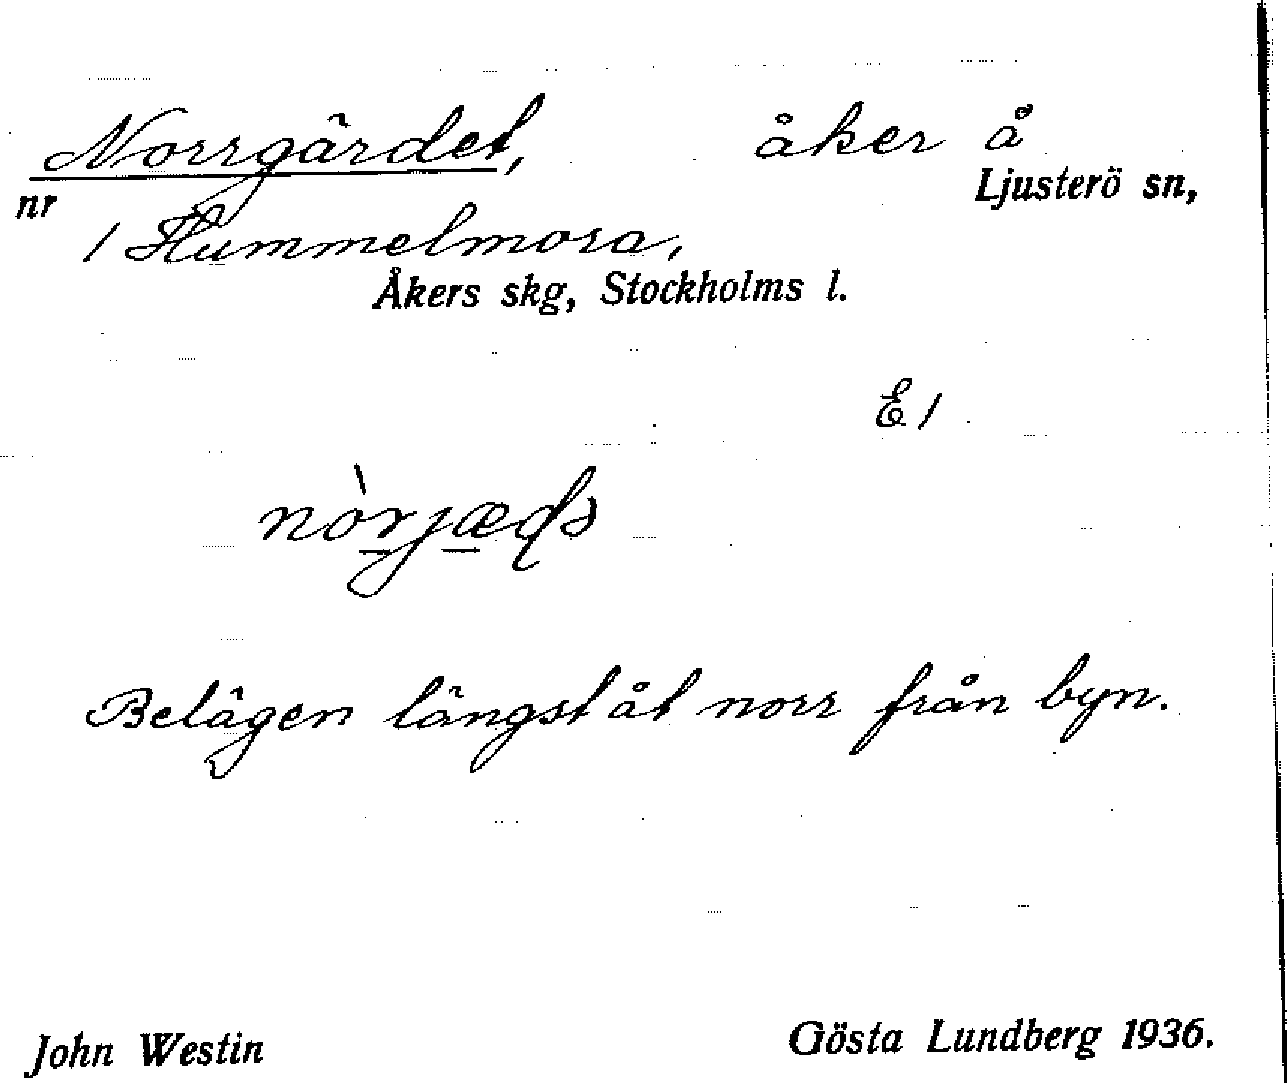 Norrgärdet, åker å
Ljusterö sn,
nr
1 Hummelmora,
Åkers skg, Stockholms l.
E 1
Belägen längst åt norr från byn.
John Westin Gösta Lundberg 1936.